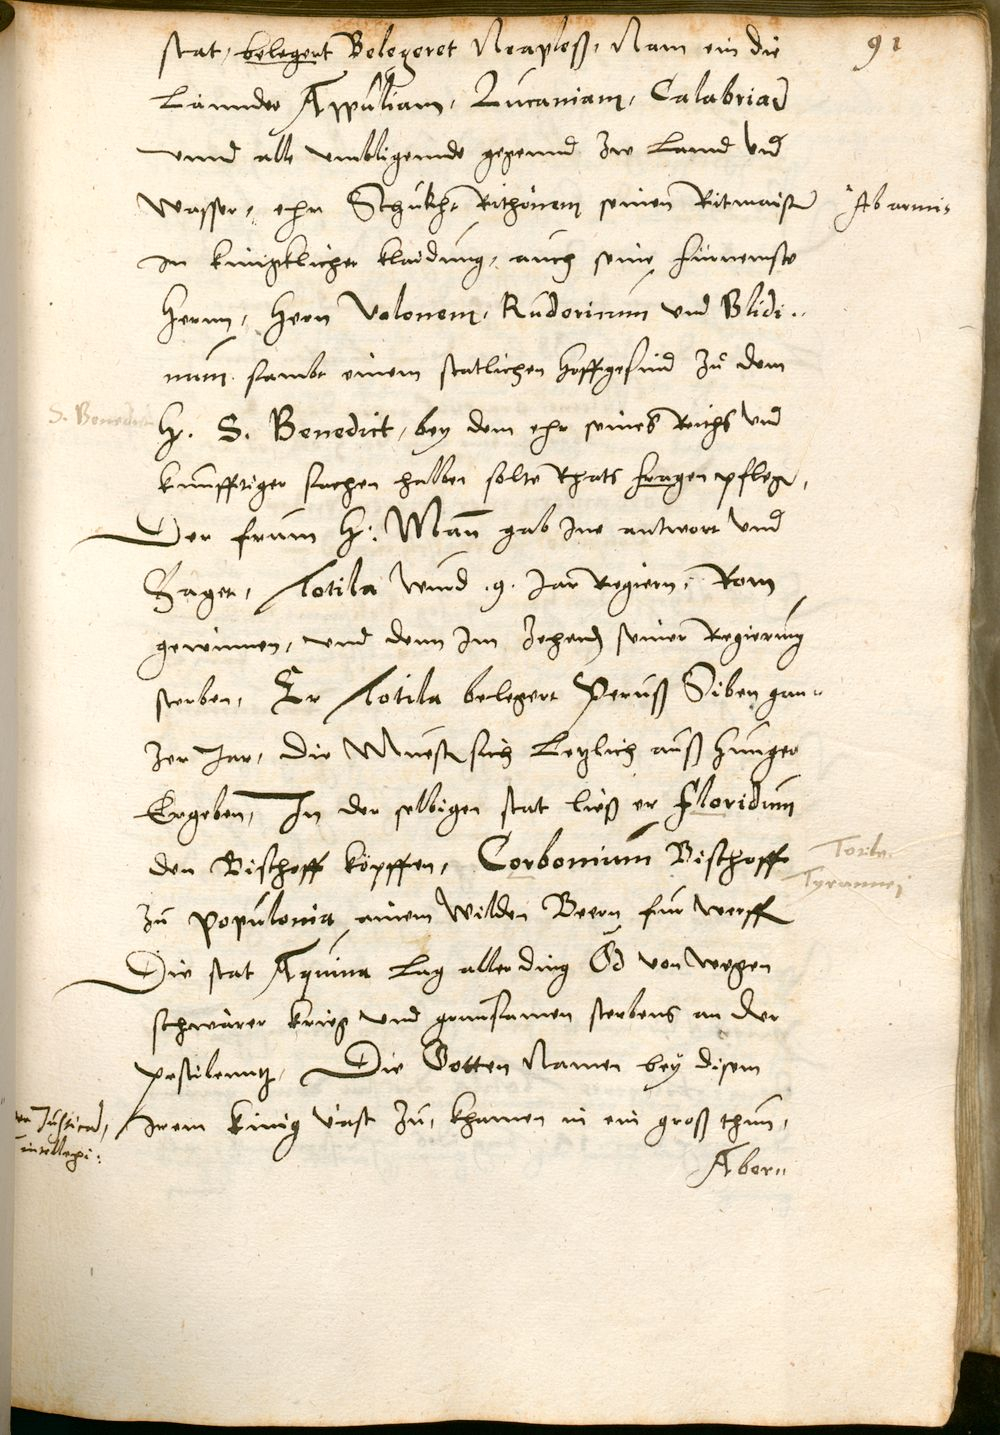 91
stat, belegert Belegeret Neapleß, Nam ein die
Lannder Appuliam, Lucaniam, Calabriam
unnd alle umbligennde gegennd Zw Lannd und
Wasser, ehr Schickht Rithonem seinen Ritmaister
Ab armis
in kinigklicher klaidung, auch seine fürnemste
Herrn, Hern Volonem, Rudericum und Blidi..
num. sambt einem statlichen hoffgesind Zu dem
S. Benedict
H. S. Benedict, bey dem ehr seines Reichs und
kunfftiger sachen halben solte Rhats fragen pflegen,
Der frum H: Mann gab Ime antwort und
Saget, Totila Wurd .9. Jar Regiern, Rom
gewinnen, und denn Im Zehend seiner Regierung
sterben, Er Totila belegert Peruß Siben gan..
Zer Jar, Die Muest sich Letzlich auß Hunger
Ergeben, In der selbigen stat ließ er Floridum
den Bischoff köpffen, Corbonium Bischoff
Totile
Tyrannei
Zu Populonia einem Wilden Beern für werffen
Die stat Aquina Lag aller ding Öd von wegen
schwärer krieg und graussamen sterbens an der
pestilenntz, Die Gotten Namen bey disem
Irem kinig Vast Zu, khamen in ein groß thun,
Aber..